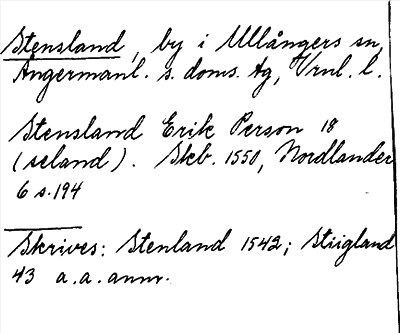 Stensland, by i Ullångers sn,
Ångermanl. s. doms. tg, Vrnl. l.
Stensland Erik Person 18
(seland). Skb. 1550, Nordlander
6 s. 194
Skrives: Stenland 1542; Stiigland
43 a. a. anm.